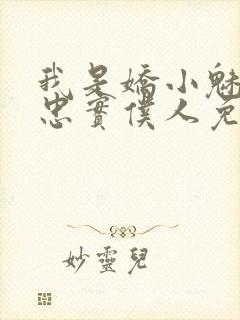 我是嬌小魅
忠實僕人克
妙靈兒